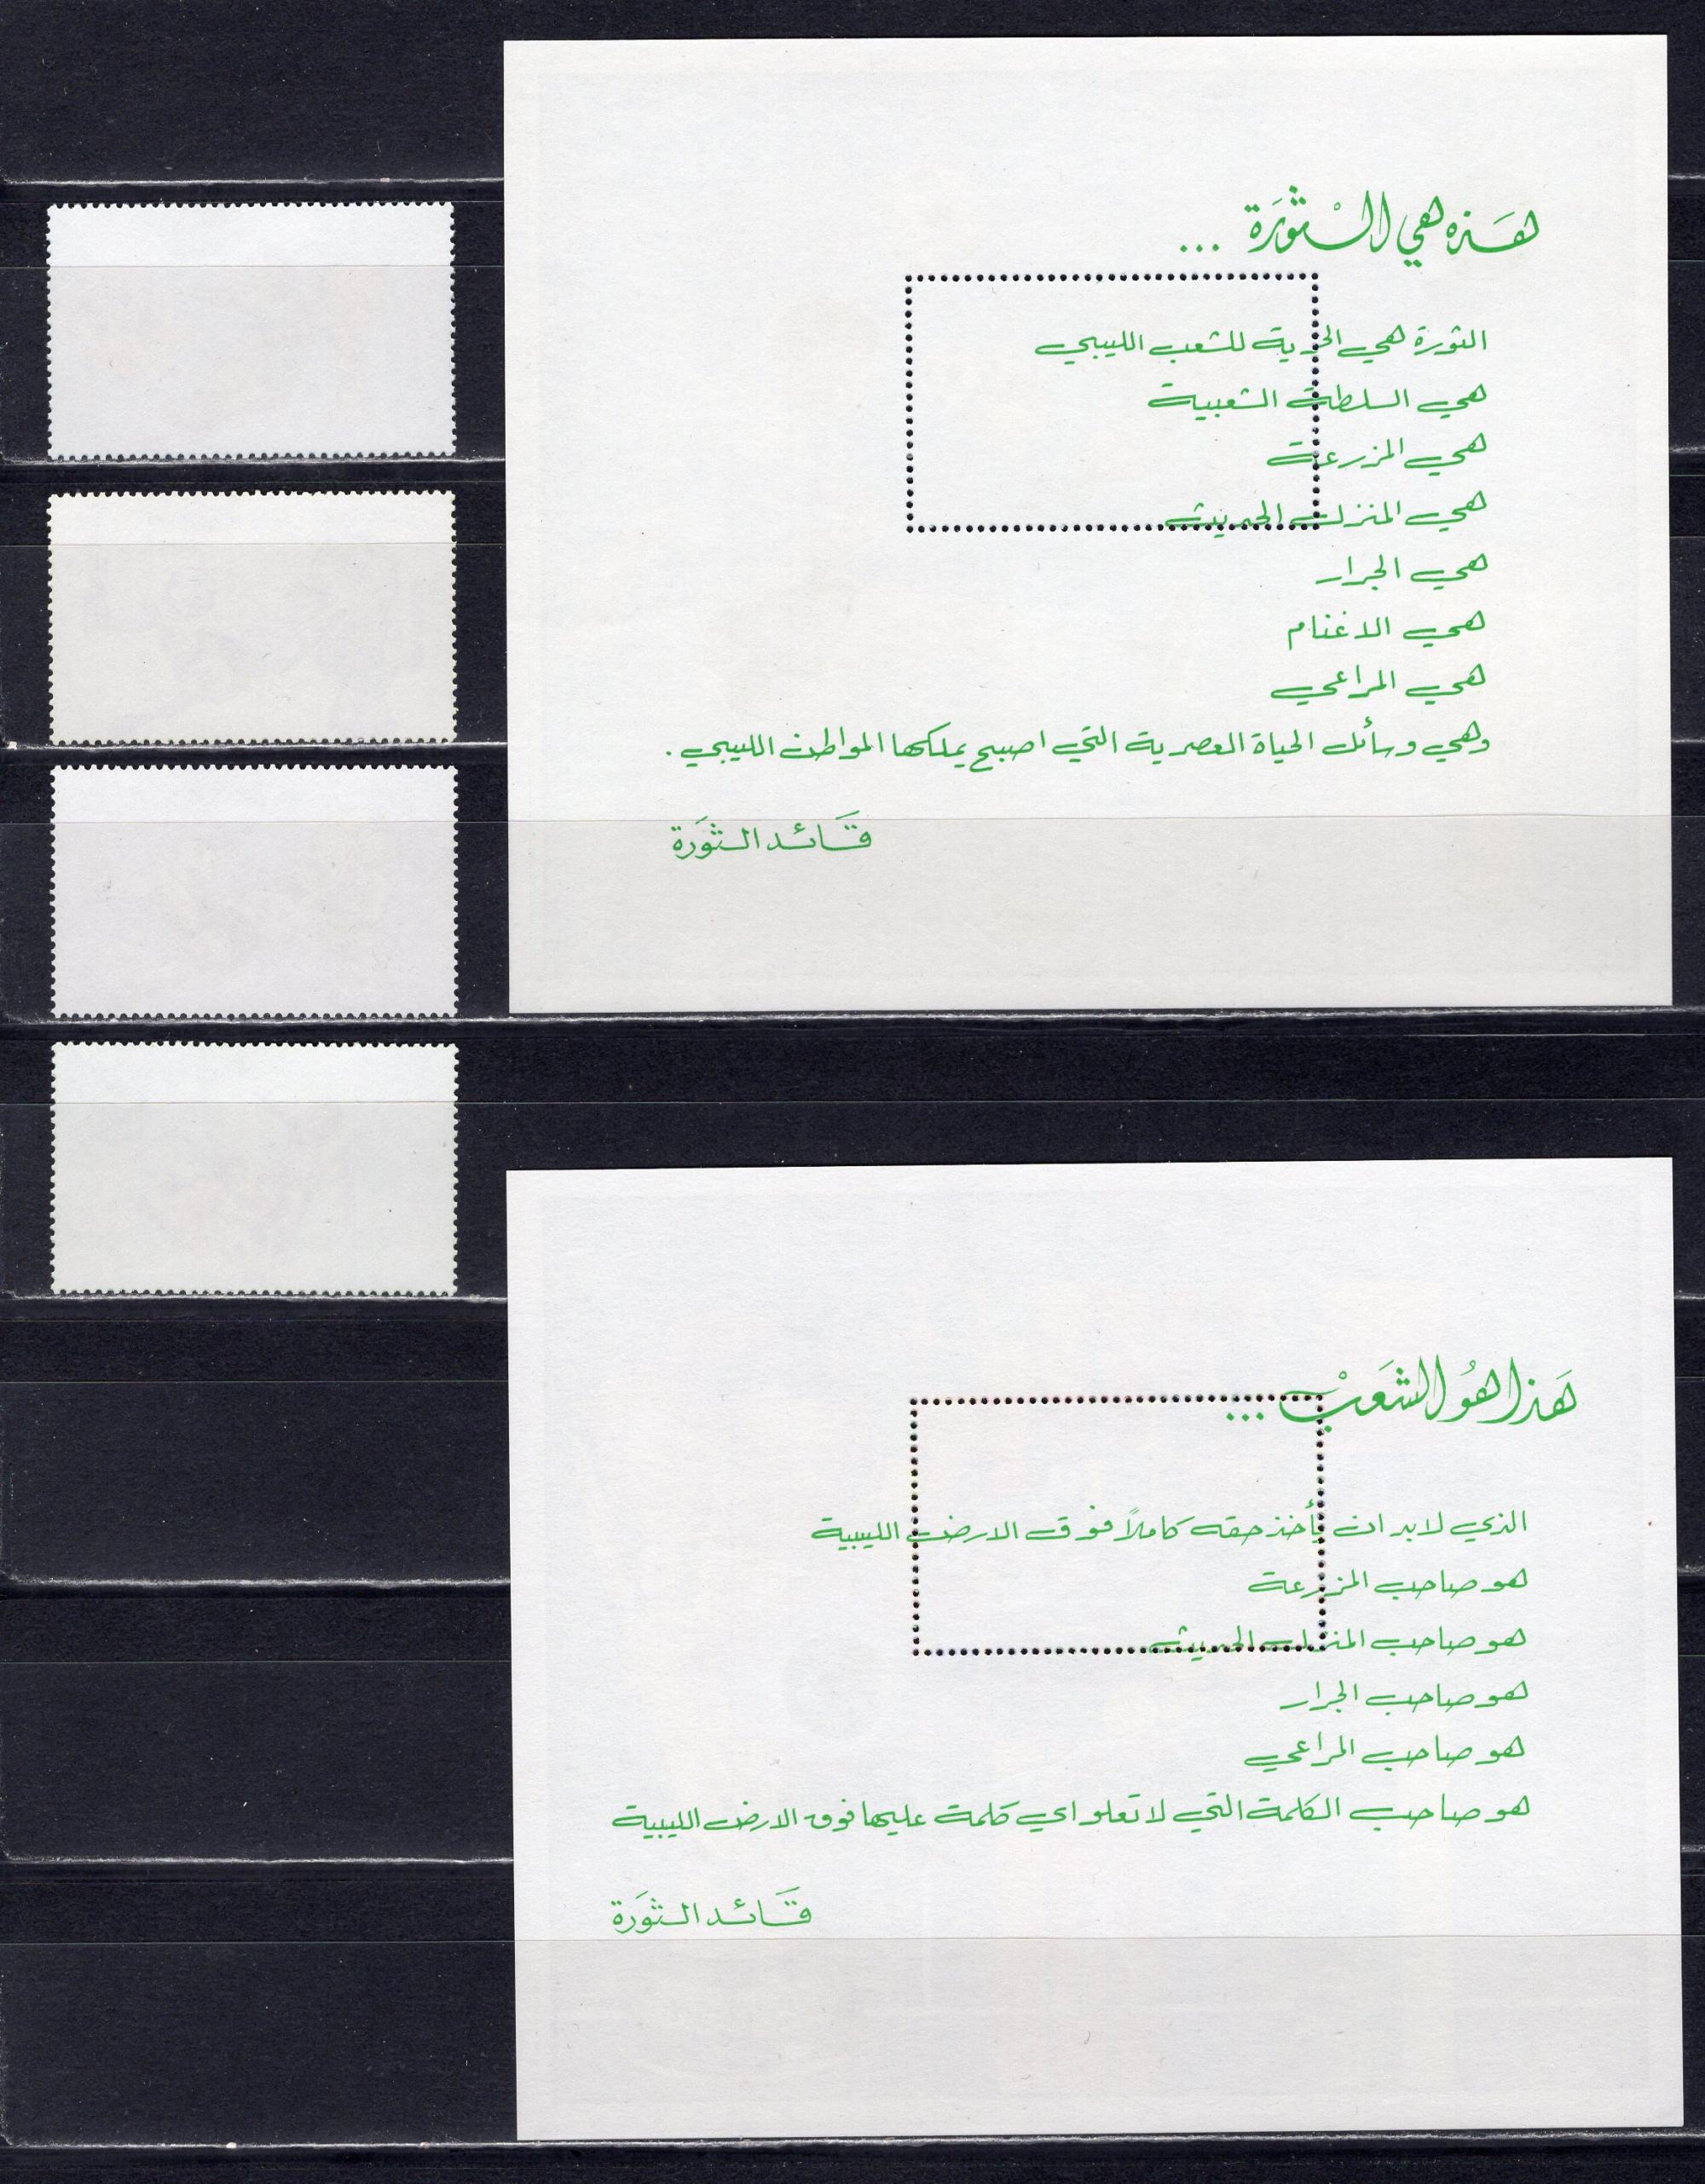 هَذِه هي الثَّوْرَة ...
الثورة هي الحرية للشعب الليبي
هي السلطة الشعبية
هي المزرعة
هي المنزل الحديث
هي الجرار
هي الاغنام
هي المراعي
وهي وسائل الحياة العصرية التي اصبح يملكها المواطن الليبي .
قَائد الثَورَة
هَذا هُوَ الشَعَبْ ...
الذي لابد ان يأخذ حقه كاملاً فوق الارض الليبية
هو صاحب المزرعة
هو صاحب المنزل الحديث
هو صاحب الجرار
هو صاحب المراعي
هو صاحب الكلمة التي لا تعلو اي كلمة عليها فوق الارض الليبية
قَائد الثَورَة